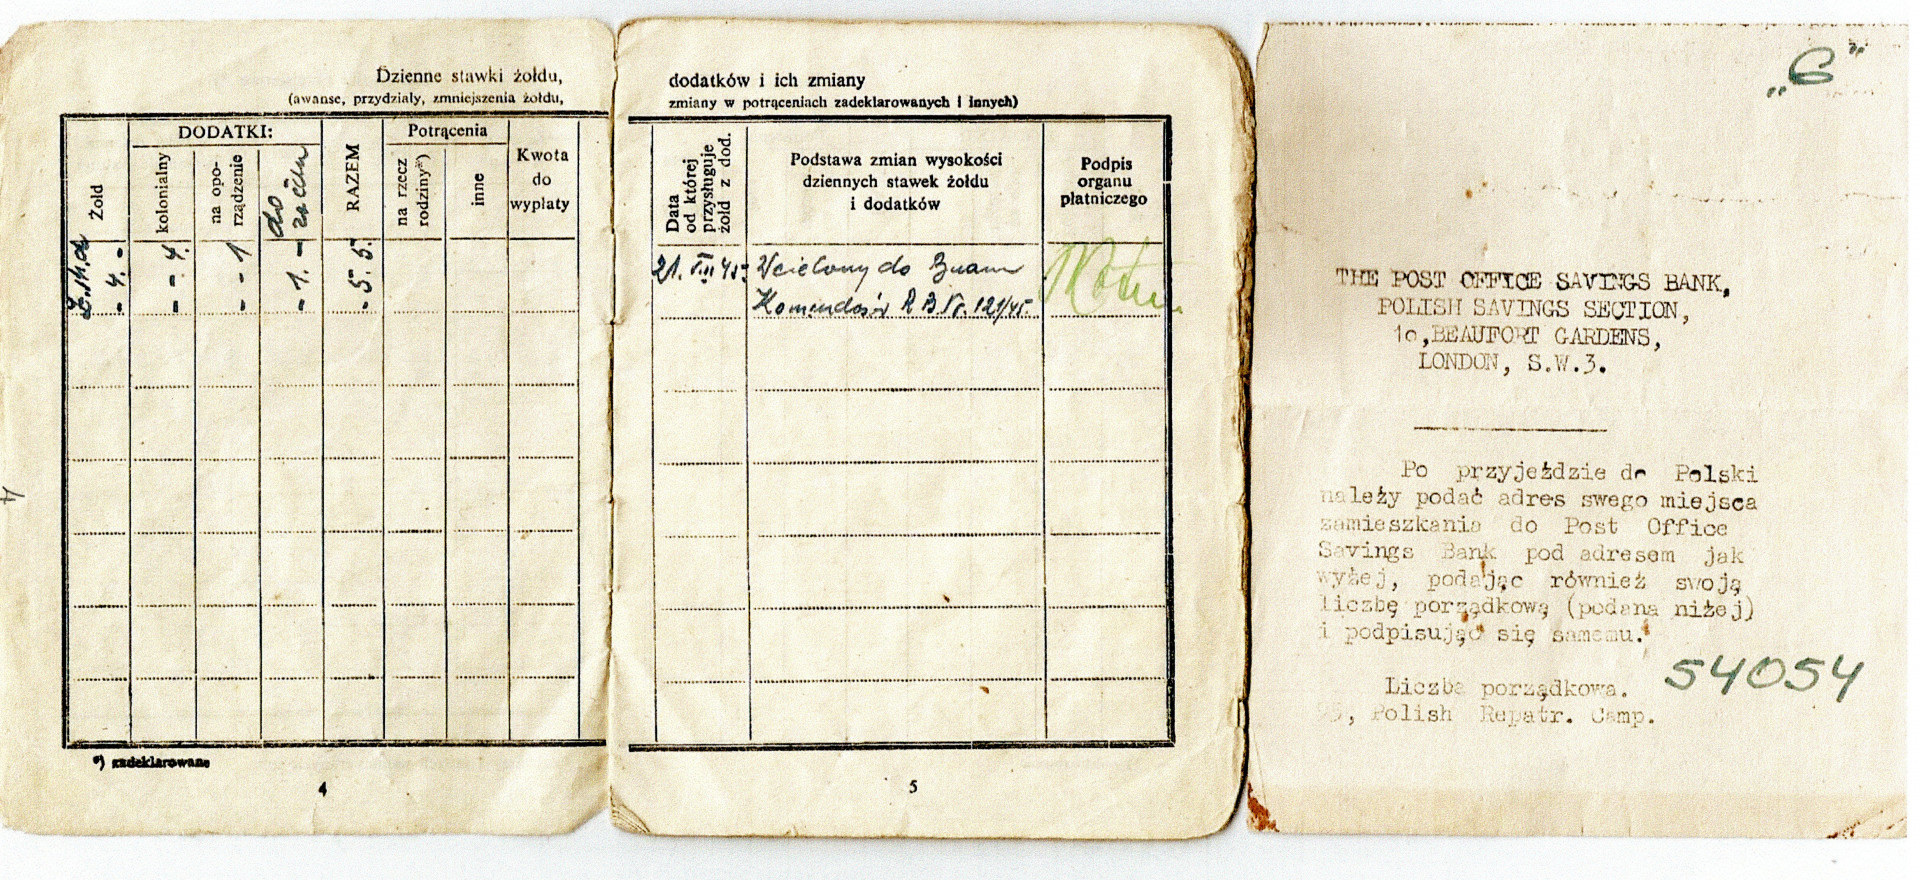 Dzienne stawki żołdu,
(awanse, przydziały, zmniejszenia żołdu,
Żołd
DODATKI:
kolonialny
na opo-
rządzenie
do
RAZEM
Potrącenia
na rzecz
rodziny*)
inne
Kwota
do
wypłaty
- 4. -
- - 4.
- - 1
- 1. -
- 5. 5.
*) zadeklarowane
4
4
dodatków i ich zmiany
zmiany w potrąceniach zadeklarowanych i innych)
Data
od której
przysługuje
żołd z dod.
Podstawa zmian wysokości
dziennych stawek żołdu
i dodatków
Podpis
organu
płatniczego
21. VIII 45. Wcielony do
R B Nr. 121/45.
5
„6"
THE POST OFFICE SAVINGS BANK,
POLISH SAVINGS SECTION,
10,BEAUFORT GARDENS,
LONDON, S.W.3.
Po przyjeździe do Polski
należy podać adres swego miejsca
zamieszkania do Post Office
Savings Bank pod adresem jak
wyżej, podając również swoją
liczbę porządkową (podana niżej)
i podpisując się samemu.
54054
Liczba porządkowa.
95, Polish Repatr. Camp.